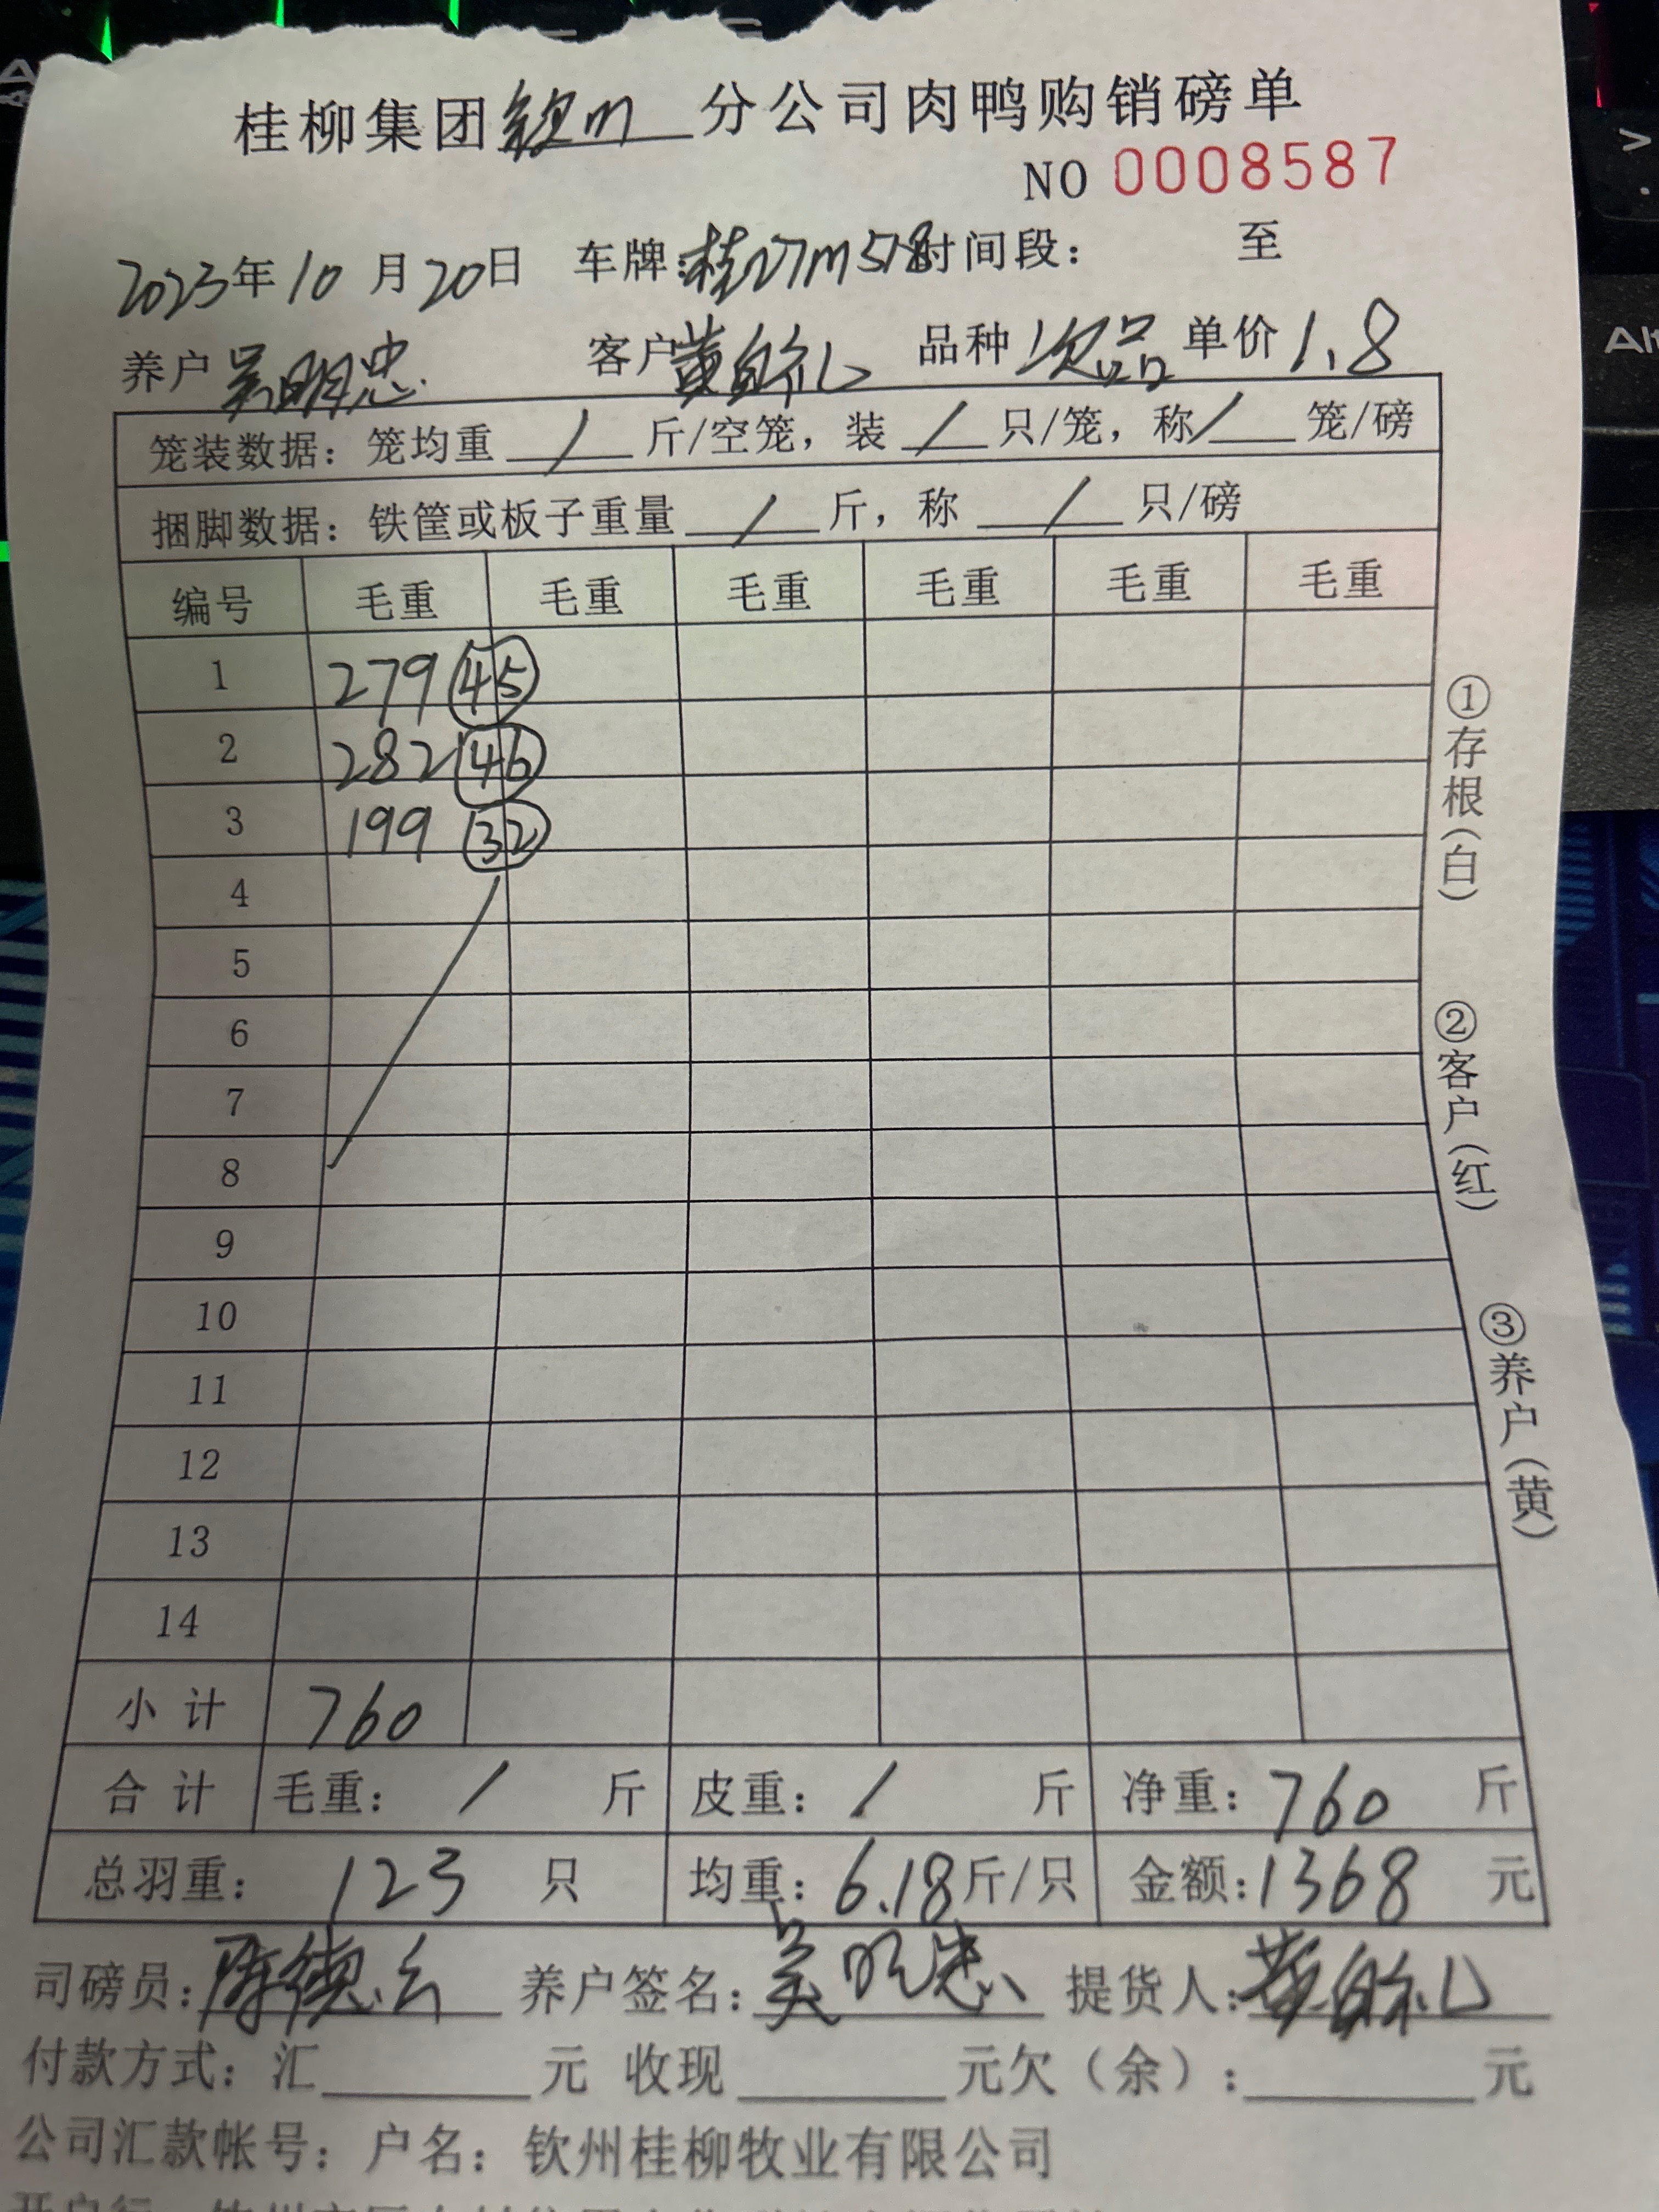 桂柳集团钦州分公司肉鸭购销磅单
NO 0008587
2023年10月20日 车牌:桂 M518时间段: 至
养户吴明忠 客户黄自礼 品种次品 单价1.8
笼装数据: 笼均重 / 斤/空笼, 装 / 只/笼, 称 / 笼/磅
捆脚数据: 铁筐或板子重量 / 斤, 称 / 只/磅
编号 毛重 毛重 毛重 毛重 毛重 毛重
1 279 45
2 282 46
3 199 32
4
5
6
7
8
9
10
11
12
13
14
小计 760
合计 毛重: / 斤 皮重: / 斤 净重: 760 斤
总羽重: 123 只 均重: 6.18斤/只 金额:1368 元
司磅员:陈德云 养户签名:吴明忠 提货人:黄自礼
付款方式: 汇 元 收现 元欠(余): 元
公司汇款帐号: 户名: 钦州桂柳牧业有限公司
①存根(白) ②客户(红) ③养户(黄)
Alt